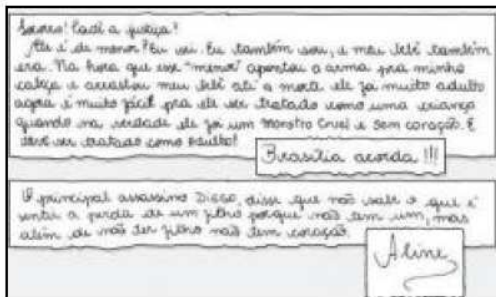 Socorro! Cadê a justiça!
Ele é de menor? Eu sei. Eu também sou, e meu bebê também
era. Na hora que esse "menor" apontou a arma pra minha
cabeça e arrastou meu bebê até a morte ele foi muito adulto
agora é muito fácil pra ele ser tratado como uma criança
quando na verdade ele foi um monstro cruel e sem coração. E
deve ser tratado como adulto!
Brasília acorda !!!
O principal assassino Diego, disse que não sabe o que é
sentir a perda de um filho porque não tem um, mas
além de não ter filho não tem coração.
Aline